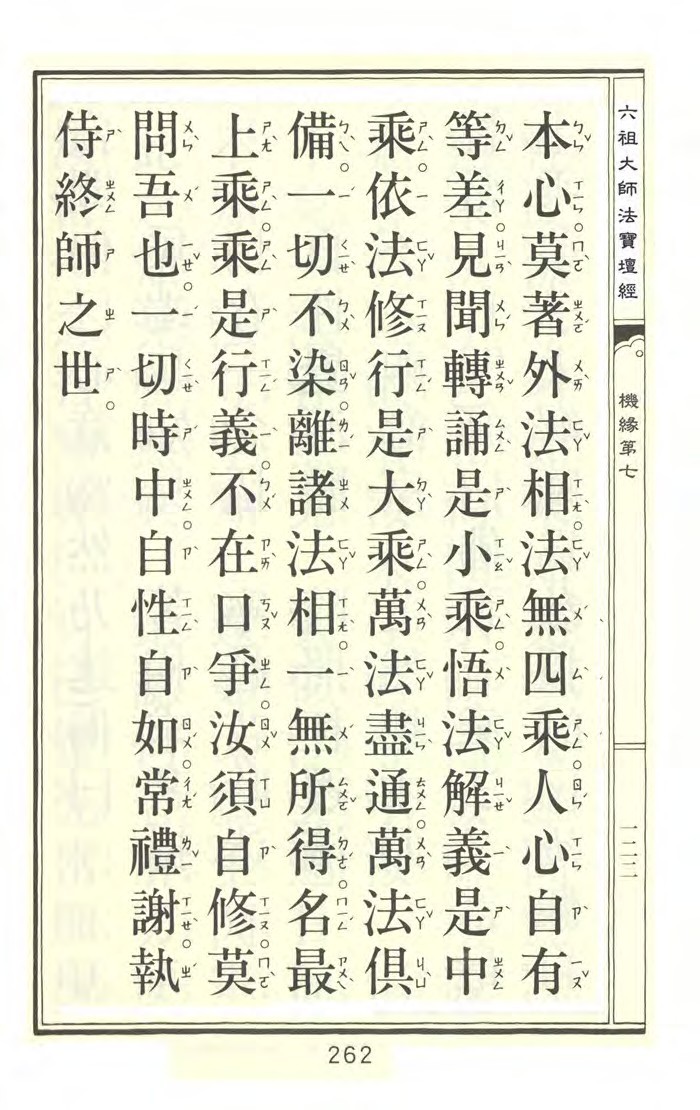 六祖大師法寶壇經
機緣第七
一二三
本心莫著外法相法無四乘人心自有
等差見聞轉誦是小乘悟法解義是中
乘依法修行是大乘萬法盡通萬法俱
備一切不染離諸法相一無所得名最
上乘乘是行義不在口爭汝須自修莫
問吾也一切時中自性自如常禮謝執
侍終師之世
262